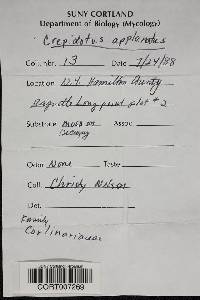 SUNY CORTLAND
Department of Biology (Mycology)
Crepidotus applanatus
Coll. nbr. 13 Date 7/24/88
Location N.Y. Hamilton County
Raquette Long point plot #2
Substrate Assoc.
Decaying
Odor None Taste
Coll. Christy
Family
Cortinariaceae
CORT007269